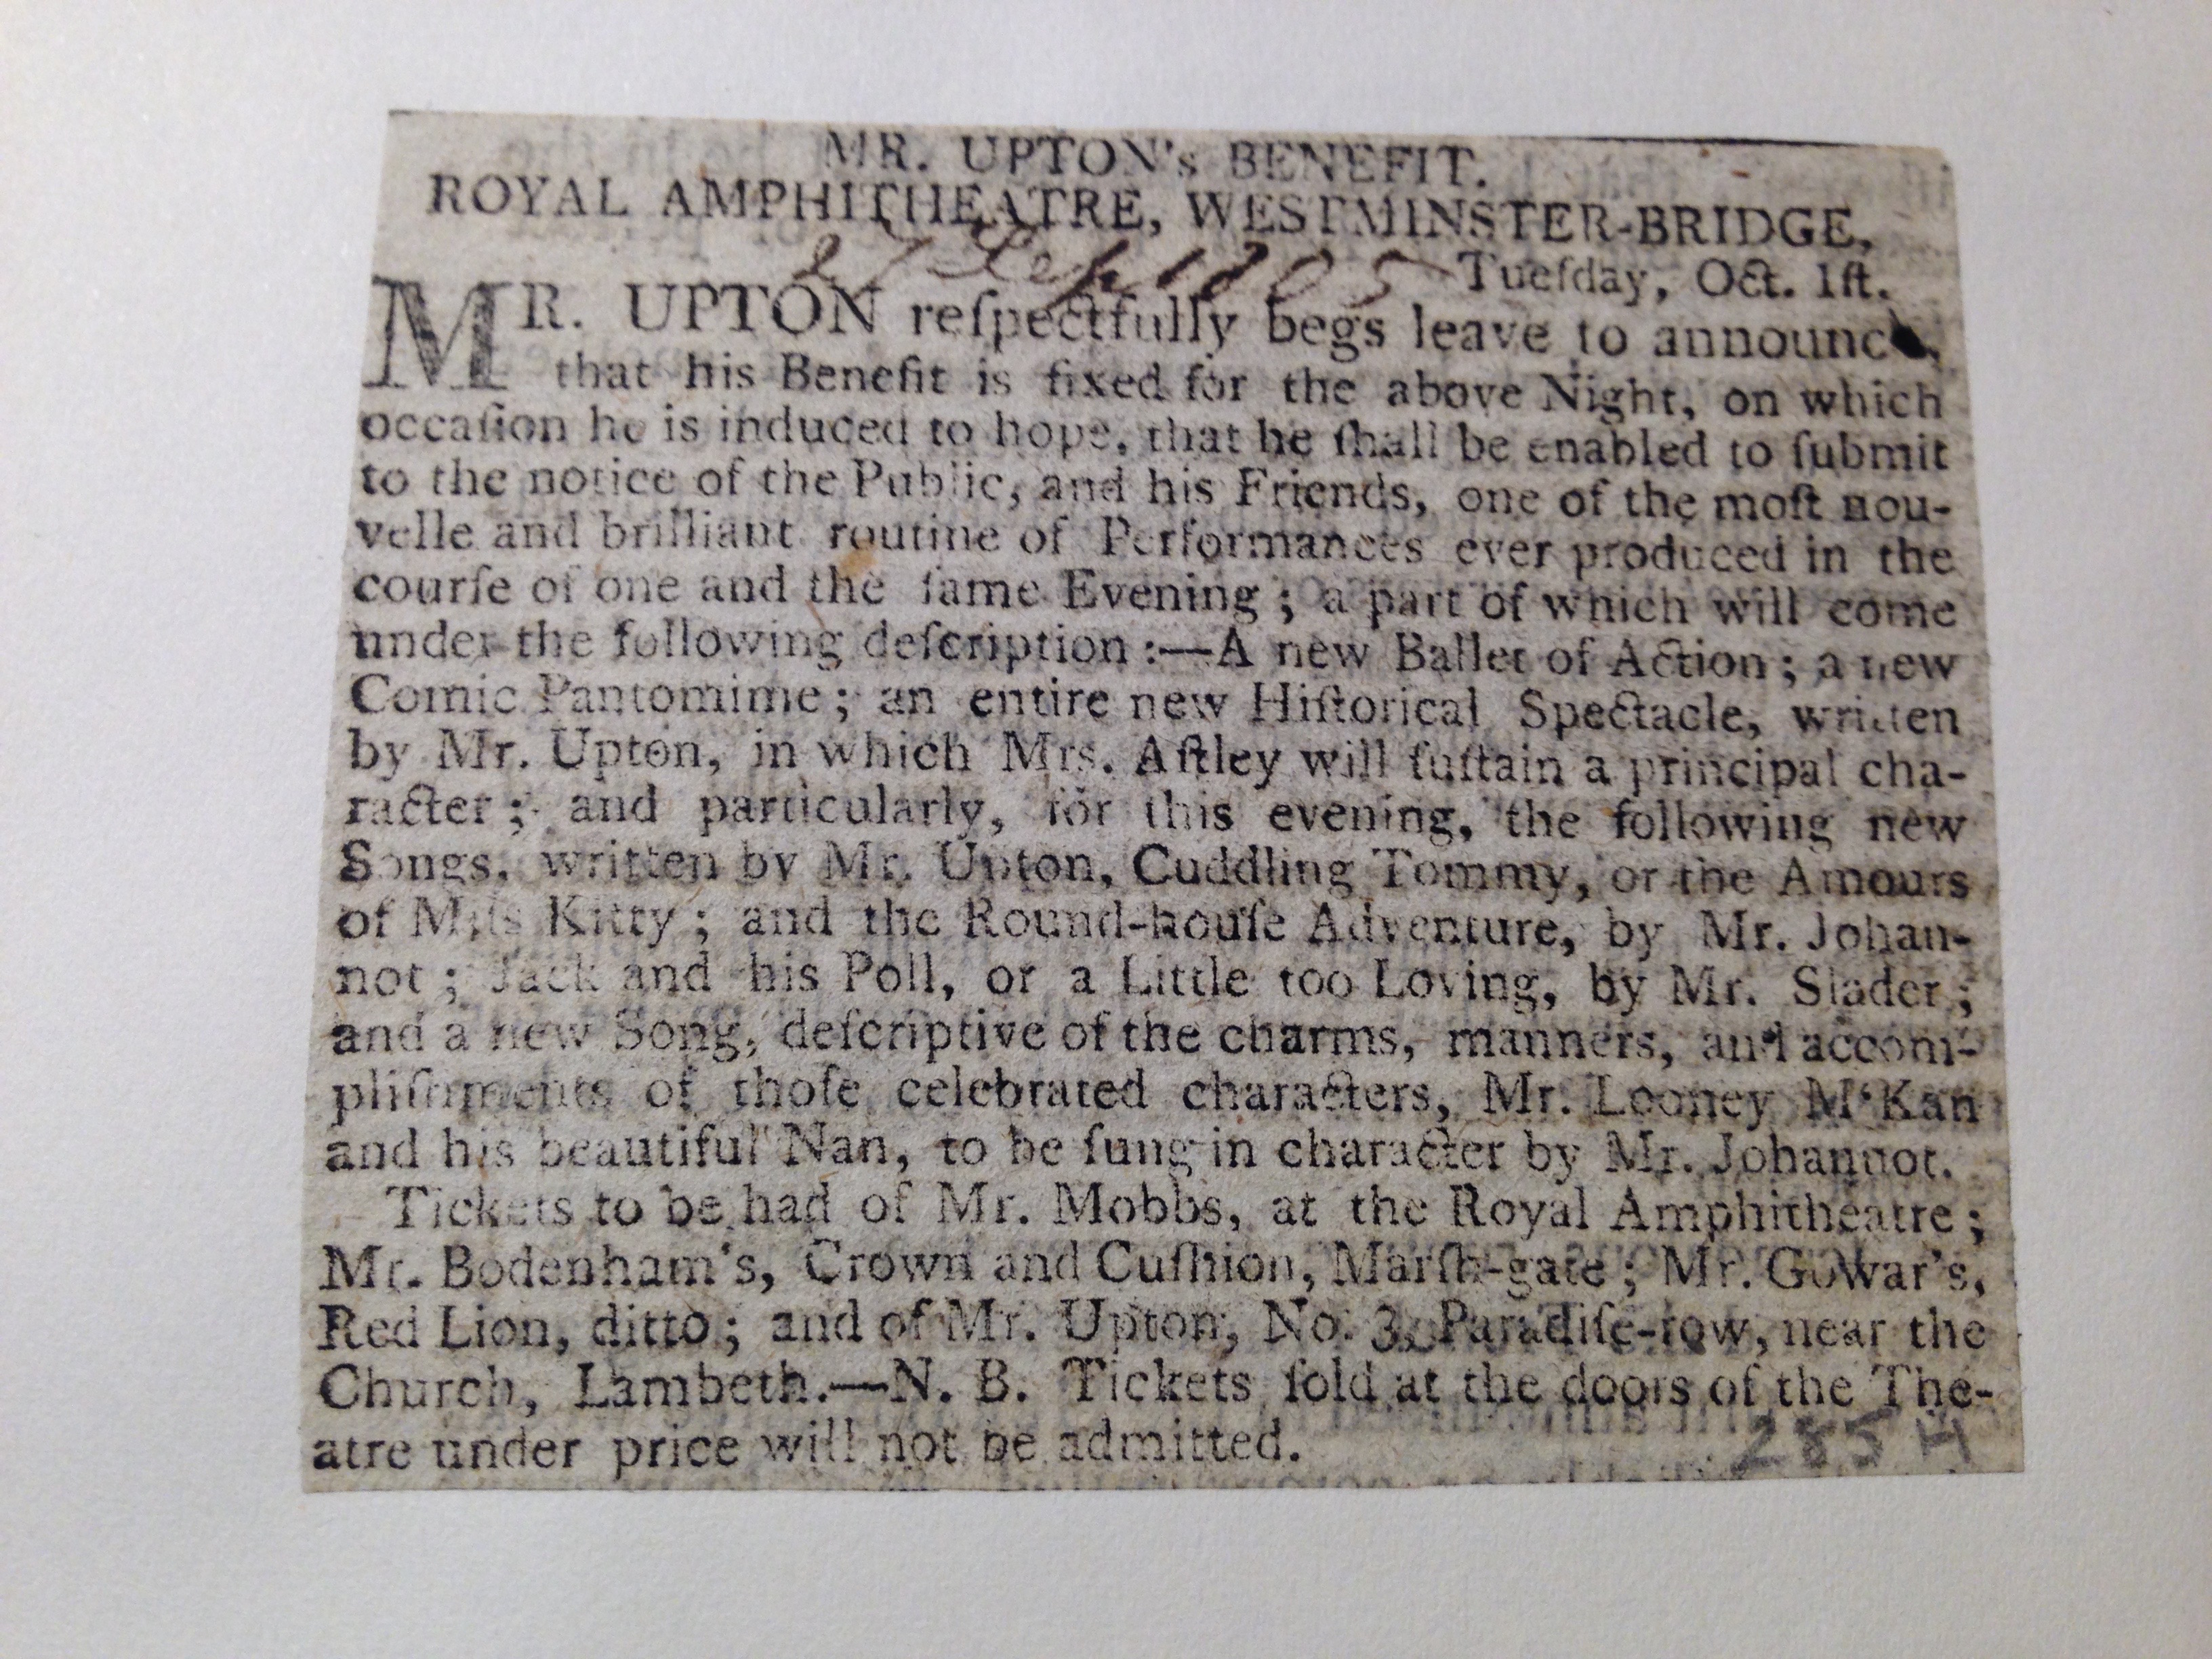 MR. UPTON's BENEFIT.
ROYAL AMPHITHEATRE, WESTMINSTER-BRIDGE,
27 Sep 1805
Tueſday, Oct. 1ſt.
MR. UPTON reſpectfully begs leave to announce,
that his Benefit is fixed for the above Night, on which
occaſion he is induced to hope, that he ſhall be enabled to ſubmit
to the notice of the Public, and his Friends, one of the moſt nou-
velle and brilliant routine of Performances ever produced in the
courſe of one and the ſame Evening; a part of which will come
under the following deſcription:—A new Ballet of Action; a new
Comic Pantomime; an entire new Hiſtorical Spectacle, written
by Mr. Upton, in which Mrs. Aſtley will ſuſtain a principal cha-
racter; and particularly, for this evening, the following new
Songs, written by Mr. Upton, Cuddling Tommy, or the Amours
of Miſs Kitty; and the Round-houſe Adventure, by Mr. Johan-
not; Jack and his Poll, or a Little too Loving, by Mr. Slader;
and a new Song, deſcriptive of the charms, manners, and accom-
pliſhments of thoſe celebrated characters, Mr. Looney M'Kan
and his beautiful Nan, to be ſung in character by Mr. Johannot.
Tickets to be had of Mr. Mobbs, at the Royal Amphitheatre;
Mr. Bodenham's, Crown and Cuſhion, Marſh-gate; Mr. Gowar's,
Red Lion, ditto; and of Mr. Upton, No. 3, Paradiſe-row, near the
Church, Lambeth.—N. B. Tickets ſold at the doors of the The-
atre under price will not be admitted.
285 H